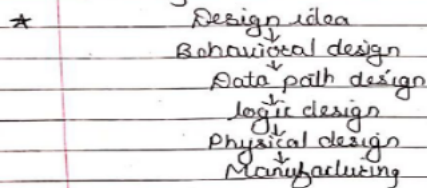 * Design idea
↓
Behavioral design
↓
Data path design
↓
logic design
↓
Physical design
↓
Manufacturing